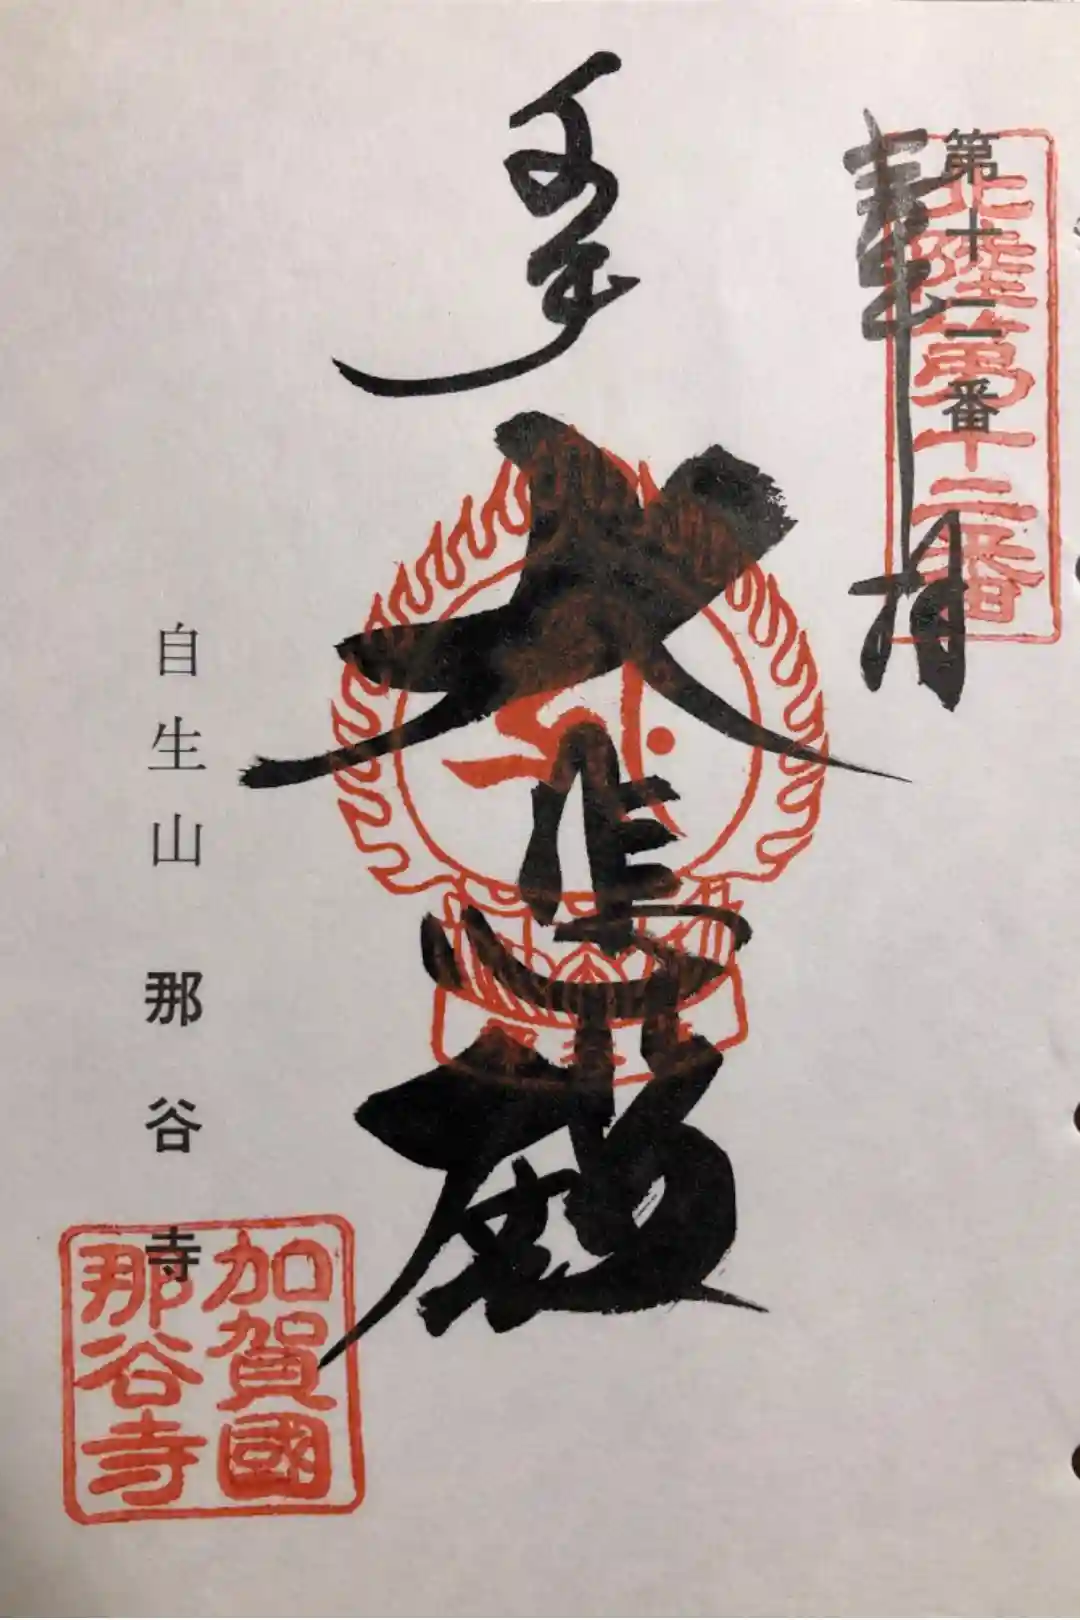 第十二番
北陸第十二番
奉拝
千手
大悲殿
自生山 那谷寺
加賀國
那谷寺